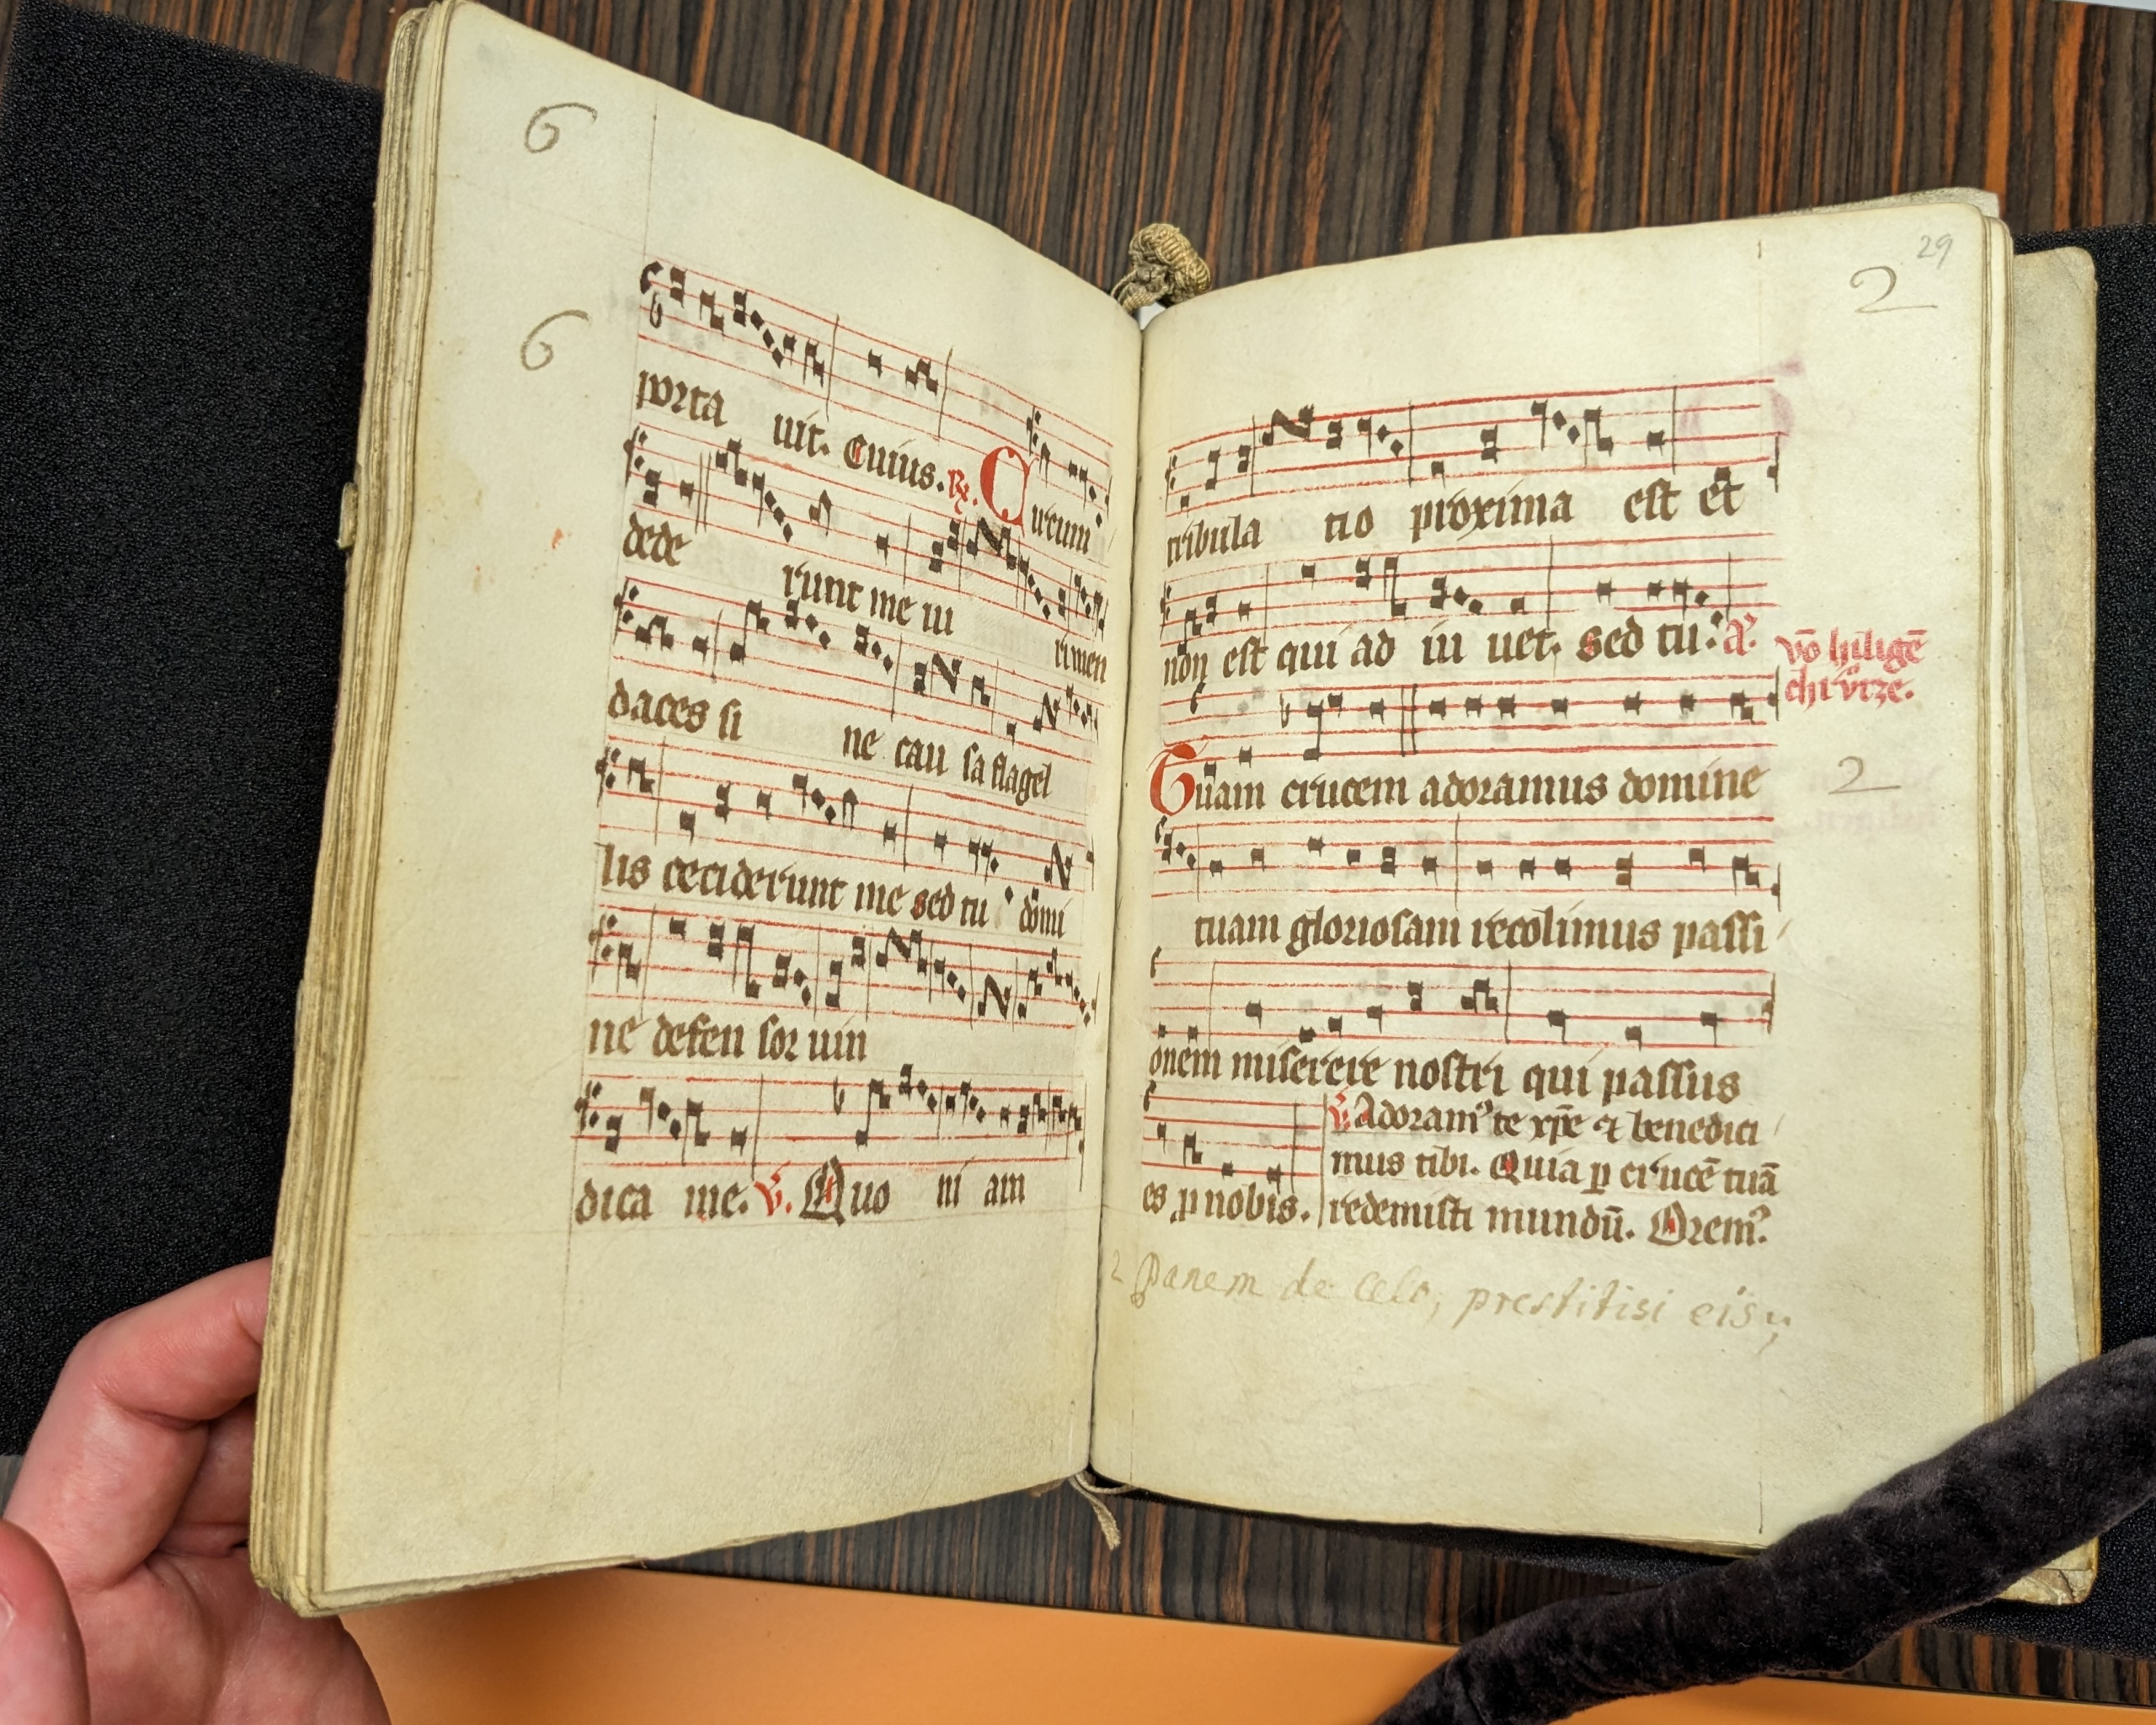 6
6
porta uit. Cuius. R. Circum
dede runt me ui ri men
daces si ne cau sa flagel
lis ceciderunt me sed tu domi
ne defen sor uin
dica me. V. Quo ni am
29
2
tribula tio proxima est et
non est qui ad iu uet. sed tu. A. vō hiligē
chrūrze.
Tuam crucem adoramus domine
2
tuam gloriosam recolimus passi
onem miserere nostri qui passus
es p nobis.
V. Adoram⁹ te xp̄e ⁊ benedici
mus tibi. Quia p crucē tuā
redemisti mundū. Orem⁹.
2 Panem de Celo, prestitisi eis